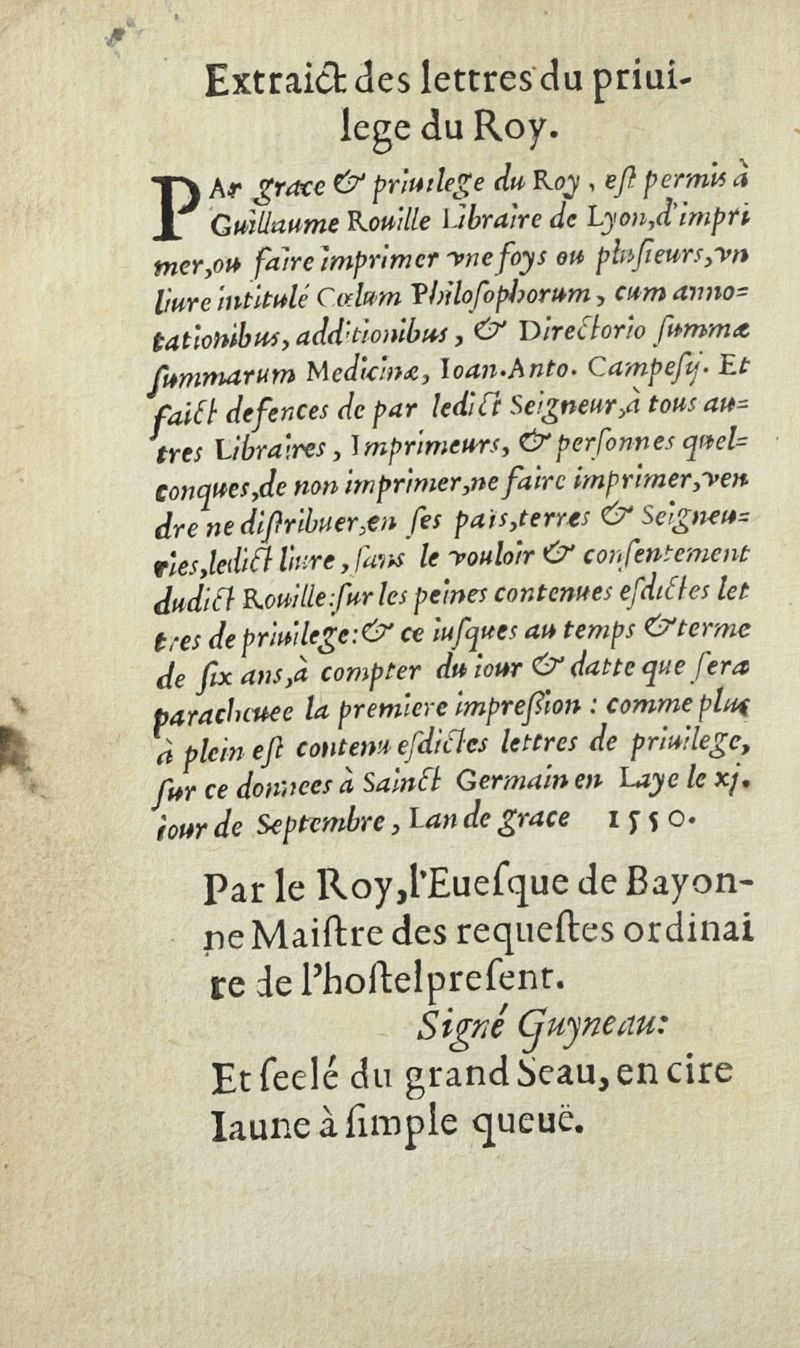 Extraict des lettres du priui-
lege du Roy.
PAr grace & priuilege du Roy, eſt permis à
Guillaume Rouille Libraire de Lyon,d'impri
mer,ou faire imprimer vne foys ou pluſieurs,vn
liure intitulé Cœlum Philoſophorum, cum anno=
tationibus, additionibus, & Directorio ſummæ
ſummarum Medicinæ, Ioan.Anto. Campeſij. Et
faict defences de par ledict Seigneur,à tous au=
tres Libraires, Imprimeurs, & perſonnes quel=
conques,de non imprimer,ne faire imprimer,ven
dre ne diſtribuer,en ſes païs,terres & Seigneu=
ries,ledict liure, ſans le vouloir & conſentement
dudict Rouille:ſur les peines contenues eſdictes let
tres de priuilege:& ce iuſques au temps & terme
de ſix ans,à compter du iour & datte que ſera
paracheuee la premiere impreſſion : comme plus
à plein eſt contenu eſdictes lettres de priuilege,
ſur ce donnees à Sainct Germain en Laye le xj.
iour de Septembre, Lan de grace 1550.
Par le Roy,l'Eueſque de Bayon-
ne Maiſtre des requeſtes ordinai
re de l'hoſtel preſent.
Signé Guyneau:
Et ſeelé du grand Seau, en cire
Iaune à ſimple queuë.